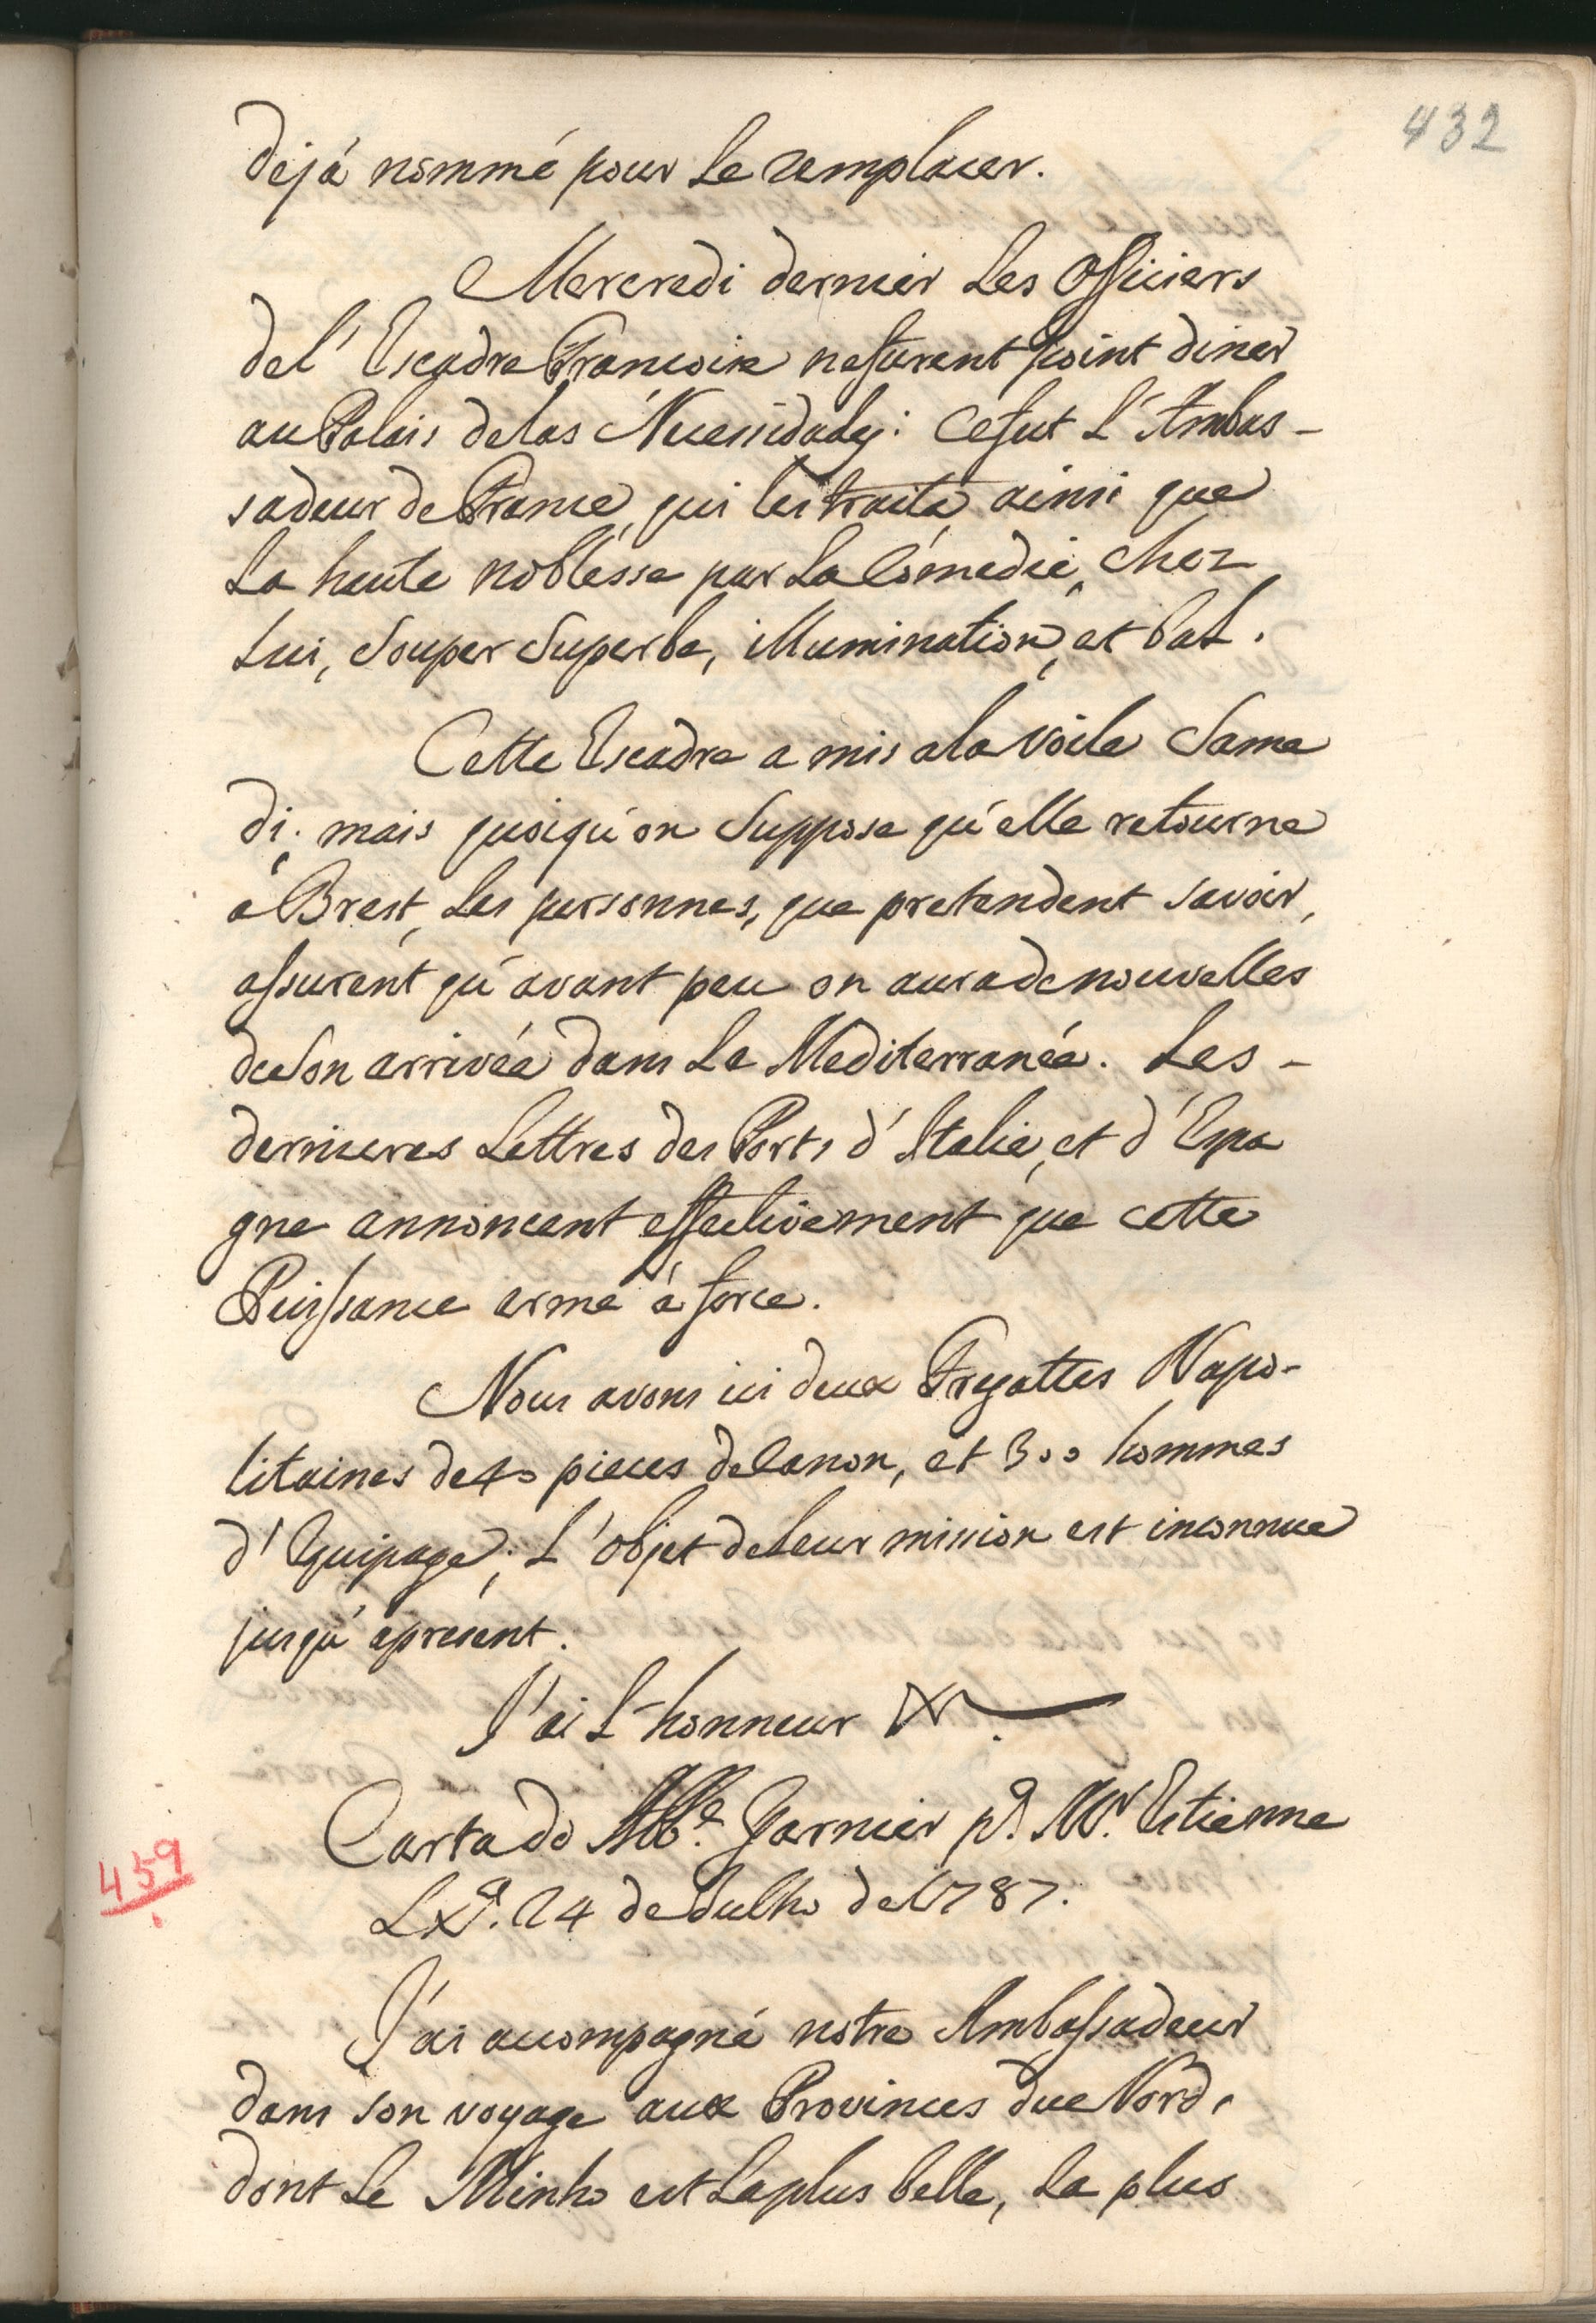 432
dejá nommé pour Le remplacer.
Mercredi dernier Les Officiers
de l'Escadre Francoise ne furent point diner
au Palais de las Necessidades: Ce fut L'Ambas-
sadeur de France, qui les traita ainsi que
La haute noblésse par La Cómedie, chez
Lui, Souper Superbe, illumination, et bal.
Cette Escadre a mis a la voile Same
di; mais quoiqu'on Suppose qu'elle retourne
a Brest, Les personnes, que pretendent savoir,
assurent qu'avant peu on aura de nouvelles
de Son arrivée dans La Mediterranée. Les-
dernieres Lettres des Ports d'Italie, et d'Espa
gne annoncent effectivement que cette
Puissance arme á force.
Nous avons ici deux Fregattes Napo-
litaines de 40 pieces de Canon, et 300 hommes
d'Equipage; L'objet de Leur mission est inconnue
jusqu'apresent.
J'ai L'honneur &.
Carta do Abb.e Garnier p.a M.r Etienne
459
Lx.a 24 de Julho de 1787.
J'ai accompagné notre Ambassadeur
dans son voyage aux Provinces due Nord,
dont Le Minho est La plus belle, La plus